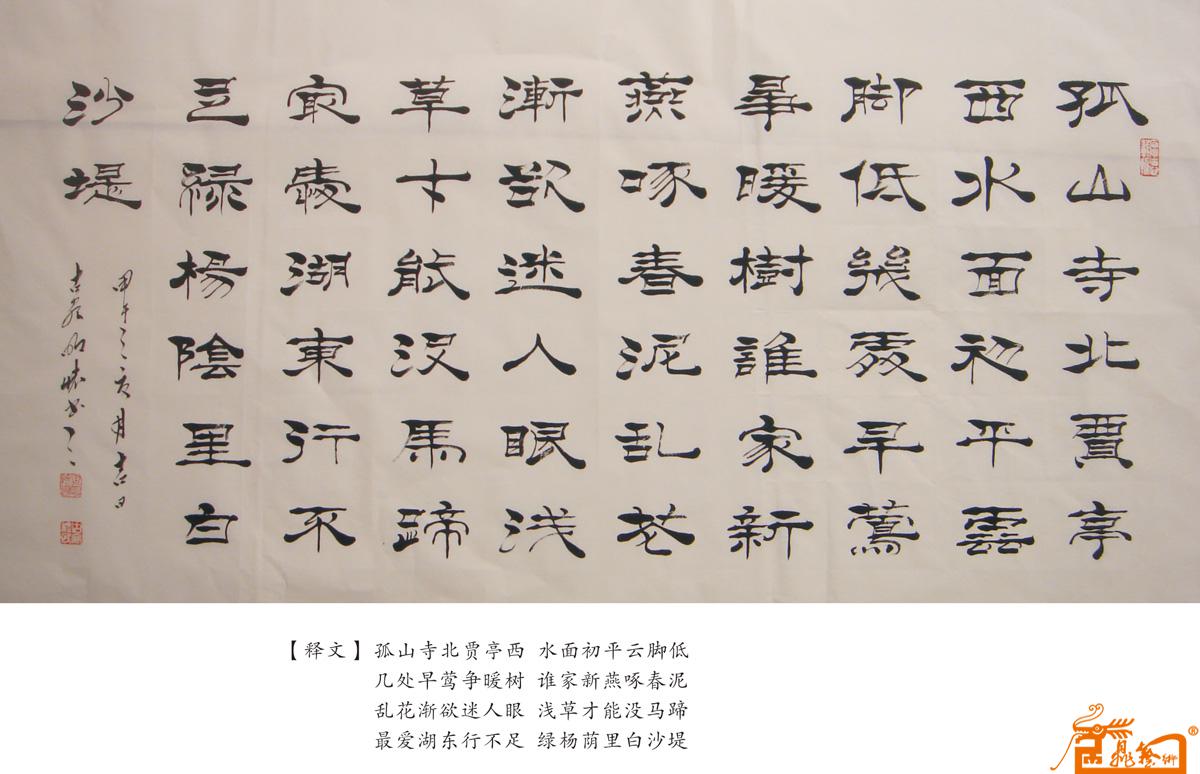 孤山寺北賈亭
西水面初平雲
脚低幾處早鶯
爭暖樹誰家新
燕啄春泥乱花
漸欲迷人眼浅
草才能没馬蹄
最愛湖東行不
足緑楊陰里白
沙堤
甲午之亥月吉日
【释文】孤山寺北贾亭西 水面初平云脚低
几处早莺争暖树 谁家新燕啄春泥
乱花渐欲迷人眼 浅草才能没马蹄
最爱湖东行不足 绿杨荫里白沙堤
®